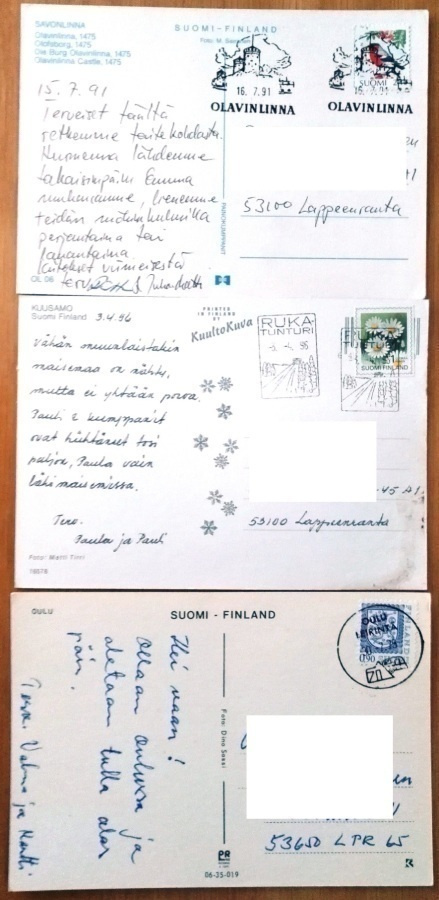 SAVONLINNA
Olavinlinna, 1475
Olofsborg, 1475
Die Burg Olavinlinna, 1475
Olavinlinna Castle, 1475
SUOMI-FINLAND
Foto: M.
SUOMI
16. 7.91
OLAVINLINNA
OLAVINLINNA
15.7.91
Terveiset täältä
retkemme
Huomenna lähdemme
takaisinpäin Emma
mukanamme,
teidän
perjantaina tai
lauantaina.
Kiitokset viimeisestä
53100 Lappeenranta
OL 06
KUUSAMO
Suomi Finland
3.4.96
PRINTED
IN FINLAND
BY
KuultoKuva
RUKA
TUNTURI
SUOMI FINLAND
Vähän muunlaistakin
maisemaa on nähty,
mutta ei yhtään poroa.
Pauli & kumppanit
ovat hiihtäneet tosi
paljon, Paula vain
lähimaisemissa.
Terv.
Paula ja Pauli
45 A1.
53100 Lappeenranta
Foto: Matti Tirri
OULU
SUOMI - FINLAND
OULU
0,90
Hei vaan!
Ollaan Oulussa ja
aletaan tulla alas
päin.
Terv. Valma ja Martti
53650 LPR 65
PR
06-25-019